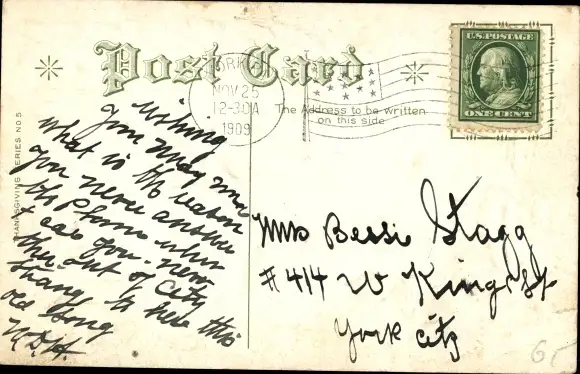 Post Card
THANKSGIVING SERIES NO. 5
YORK
NOV 25
12-30A
1909
U.S. POSTAGE
ONE CENT
The Address to be written
on this side
wishing
you may
what is the reason
you never answer
the phone when
I call you
out of City
Strange to hear this
old song
Miss Bessi Stagg
# 414 W King St
York City
6